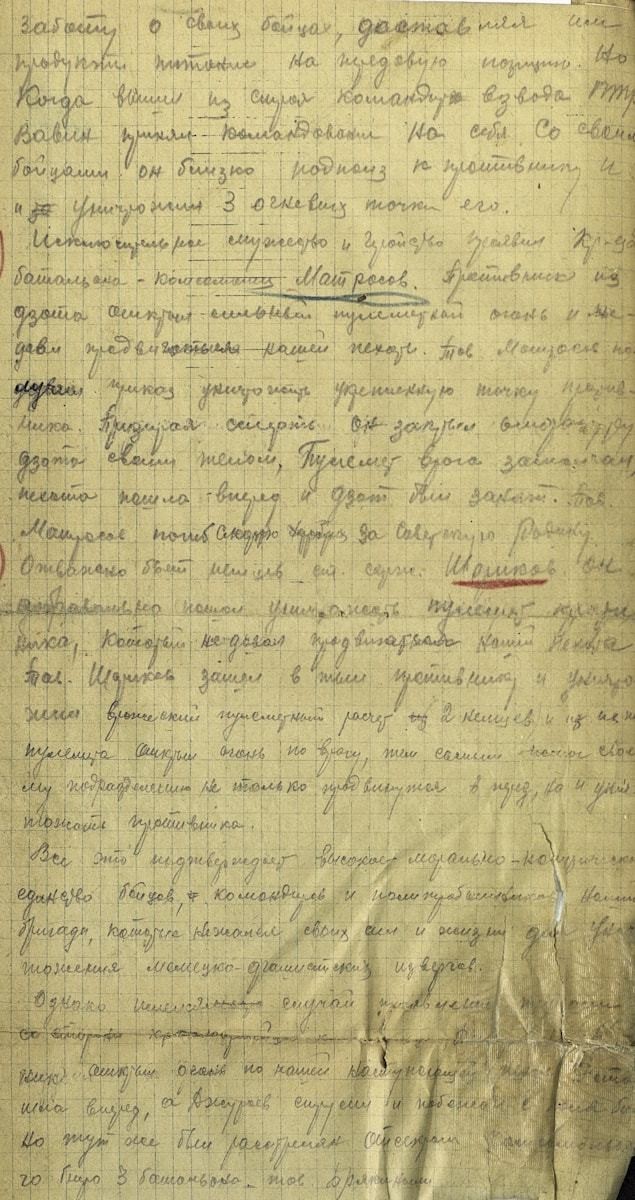 Заботу о своих бойцах, доставляя им
продукты питания на передовую позицию. Но
Когда вышел из строя командир взвода ПТР
Вавин принял командование на себя. Со своими
бойцами он близко подполз к противнику и
и уничтожил 3 огневых точки его.
Исключительное мужество и геройство проявил
батальона - комсомолец Матросов. Противник из
дзота открыл сильный пулеметный огонь и не
давал продвигаться нашей пехоте. Тов Матросов по
лучил приказ уничтожить укрепленную точку против
ника. Презирая смерть он закрыл
дзота своим телом, Пулемет врага замолчал,
пехота пошла вперед и дзот был занят. Тов.
Матросов погиб за Советскую Родину.
Отважно бьет немцев ст. серж. Шариков. Он
пошел уничтожать пулемет против
ника, который не давал продвигаться нашей пехоте
Тов. Шариков зашел в тыл противнику и уничто
жил вражеский пулеметный расчет 2 немцев и из
пулемета открыл огонь по врагу, тем самым помог свое
му подразделению не только продвинутся в перед, но и уни
тожать противника.
Все это подтверждает высокое морально-политическое
единство бойцов, командиров и политработников нашей
бригады, которые не жалея своих сил и жизни для унич
тожения немецко-фашистских извергов.
Однако имелся случай проявления трусости
со стороны
открыл огонь по нашей наступающей
шла вперед, а Джураев струсил и побежал с поля боя
но тут же был расстрелян
го бюро 3 батальона тов